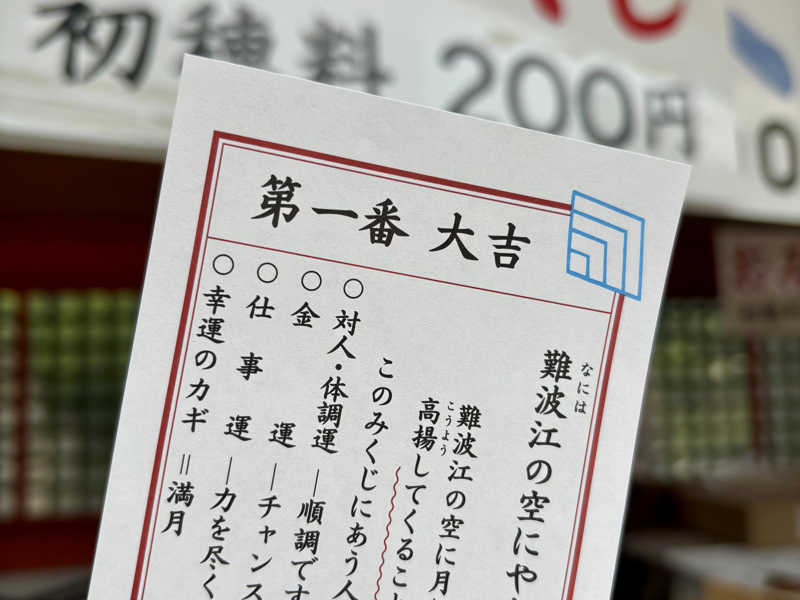 初穂料 200円
第一番 大吉
難波江の空にや
なには
難波江の空に月
高揚してくること
こうよう
このみくじにあう人
○対人・体調運―順調です
○金運―チャンス
○仕事運―力を尽く
○幸運のカギ=満月